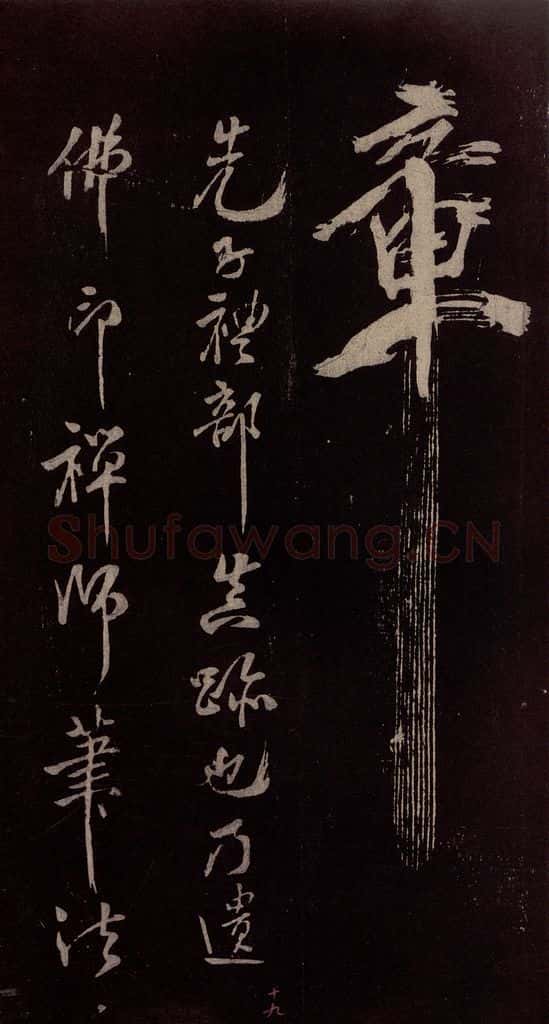 章
先子禮部真跡也乃遺
佛印禪師筆法
十九
Shufawang.CN